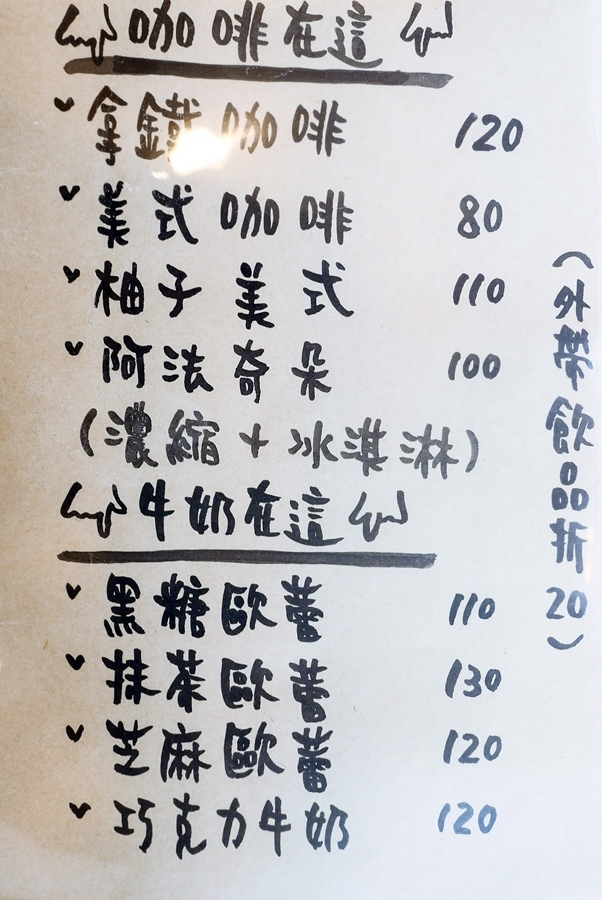 咖啡在這
拿鐵咖啡 120
美式咖啡 80
柚子美式 110
阿法奇朵 100
(濃縮+冰淇淋)
牛奶在這
黑糖歐蕾 110
抹茶歐蕾 130
芝麻歐蕾 120
巧克力牛奶 120
(外帶飲品折20)